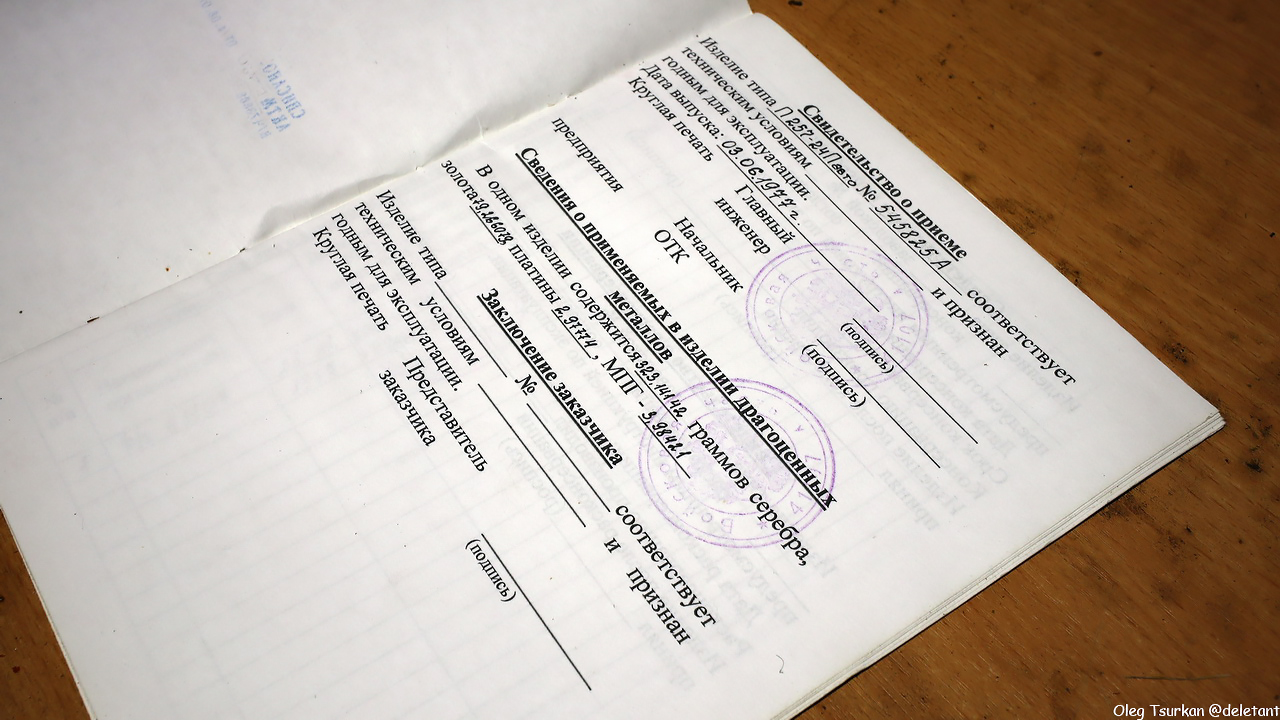 Свидетельство о приеме
Изделие типа П257-24П авто № 545825 А соответствует
техническим условиям и признан
годным для эксплуатации.
Дата выпуска: 03.06.1977 г.
Круглая печать Главный
предприятия инженер
(подпись)
Начальник
ОТК
(подпись)
Сведения о применяемых в изделии драгоценных
металлов
В одном изделии содержится 323,14142 граммов серебра,
золота платины 2,9174, МПГ - 3,98421
Заключение заказчика
Изделие типа № соответствует
техническим условиям и признан
годным для эксплуатации.
Круглая печать Представитель
заказчика
(подпись)
СПИСАНО
АКТ №
Oleg Tsurkan @deletant